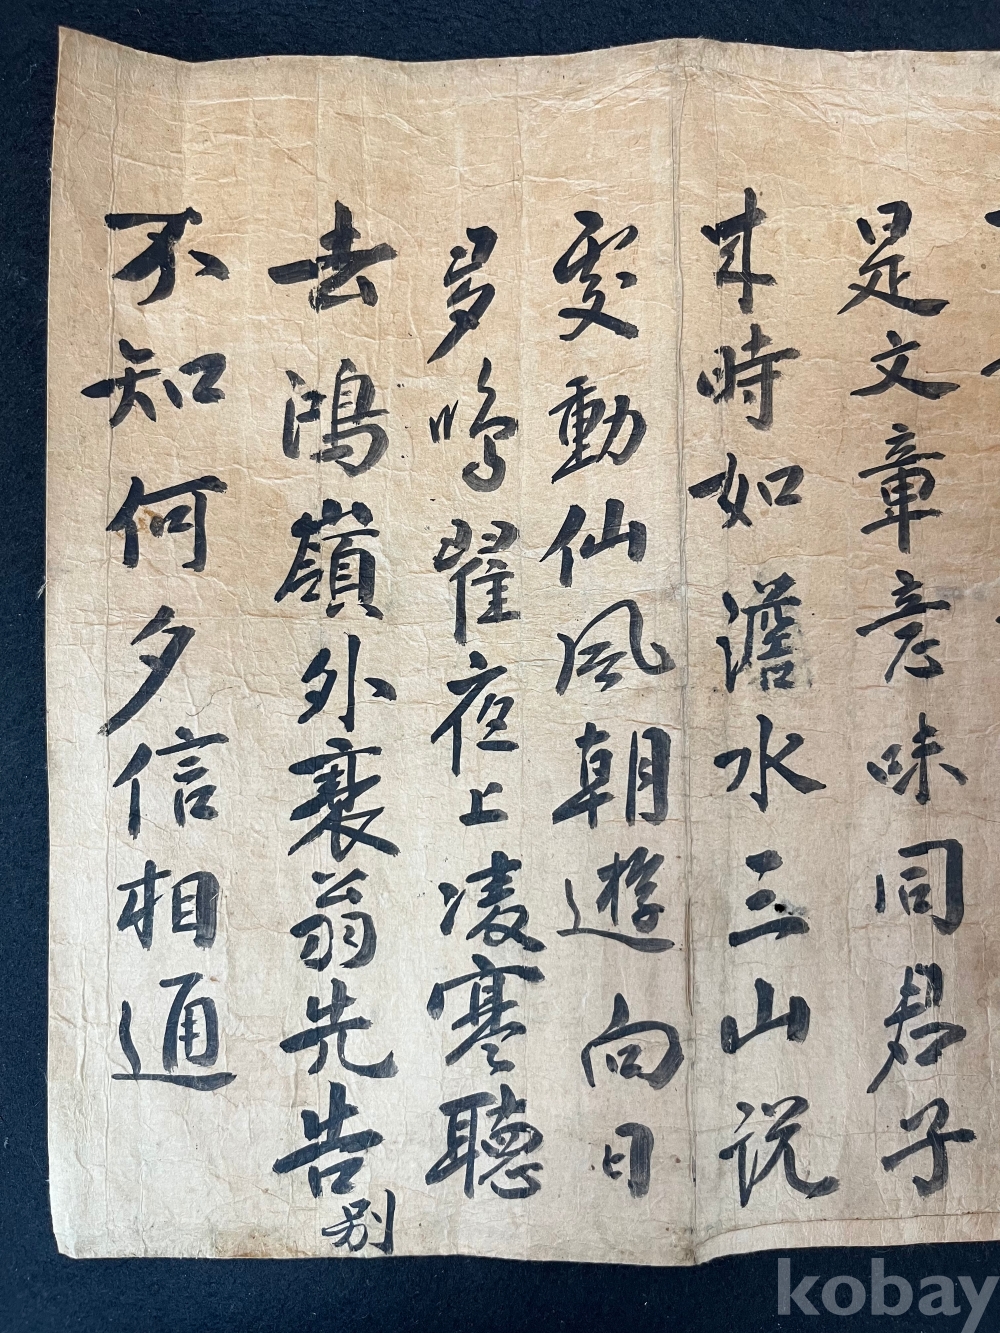 是文章意味同君子
來時如澹水三山說
處動仙風朝遊向日
多鳴翟夜上凌寒聽
去鴻嶺外衰翁先告別
不知何夕信相通
kobay